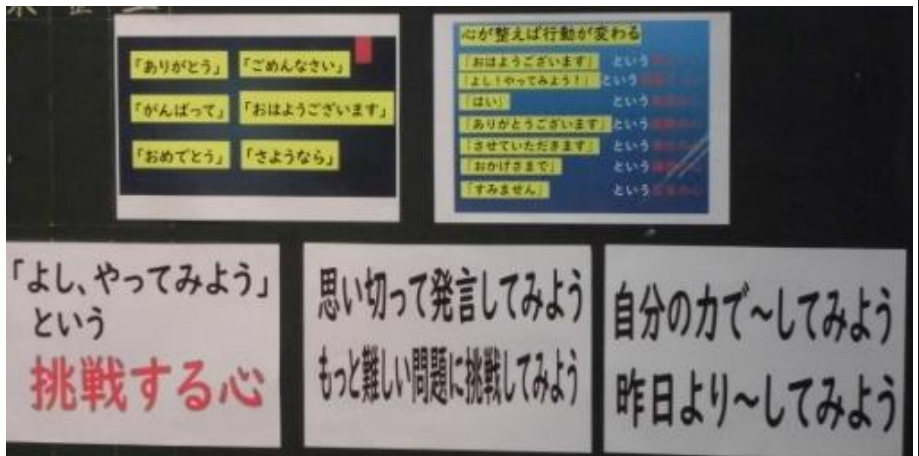 「ありがとう」 「ごめんなさい」
「がんばって」 「おはようございます」
「おめでとう」 「さようなら」
心が整えば行動が変わる
「おはようございます」 という
「よし!やってみよう!」 という
「はい」 という
「ありがとうございます」 という
「させていただきます」 という
「おかげさまで」 という
「すみません」 という
「よし、やってみよう」
という
挑戦する心
思い切って発言してみよう
もっと難しい問題に挑戦してみよう
自分の力で~してみよう
昨日より~してみよう